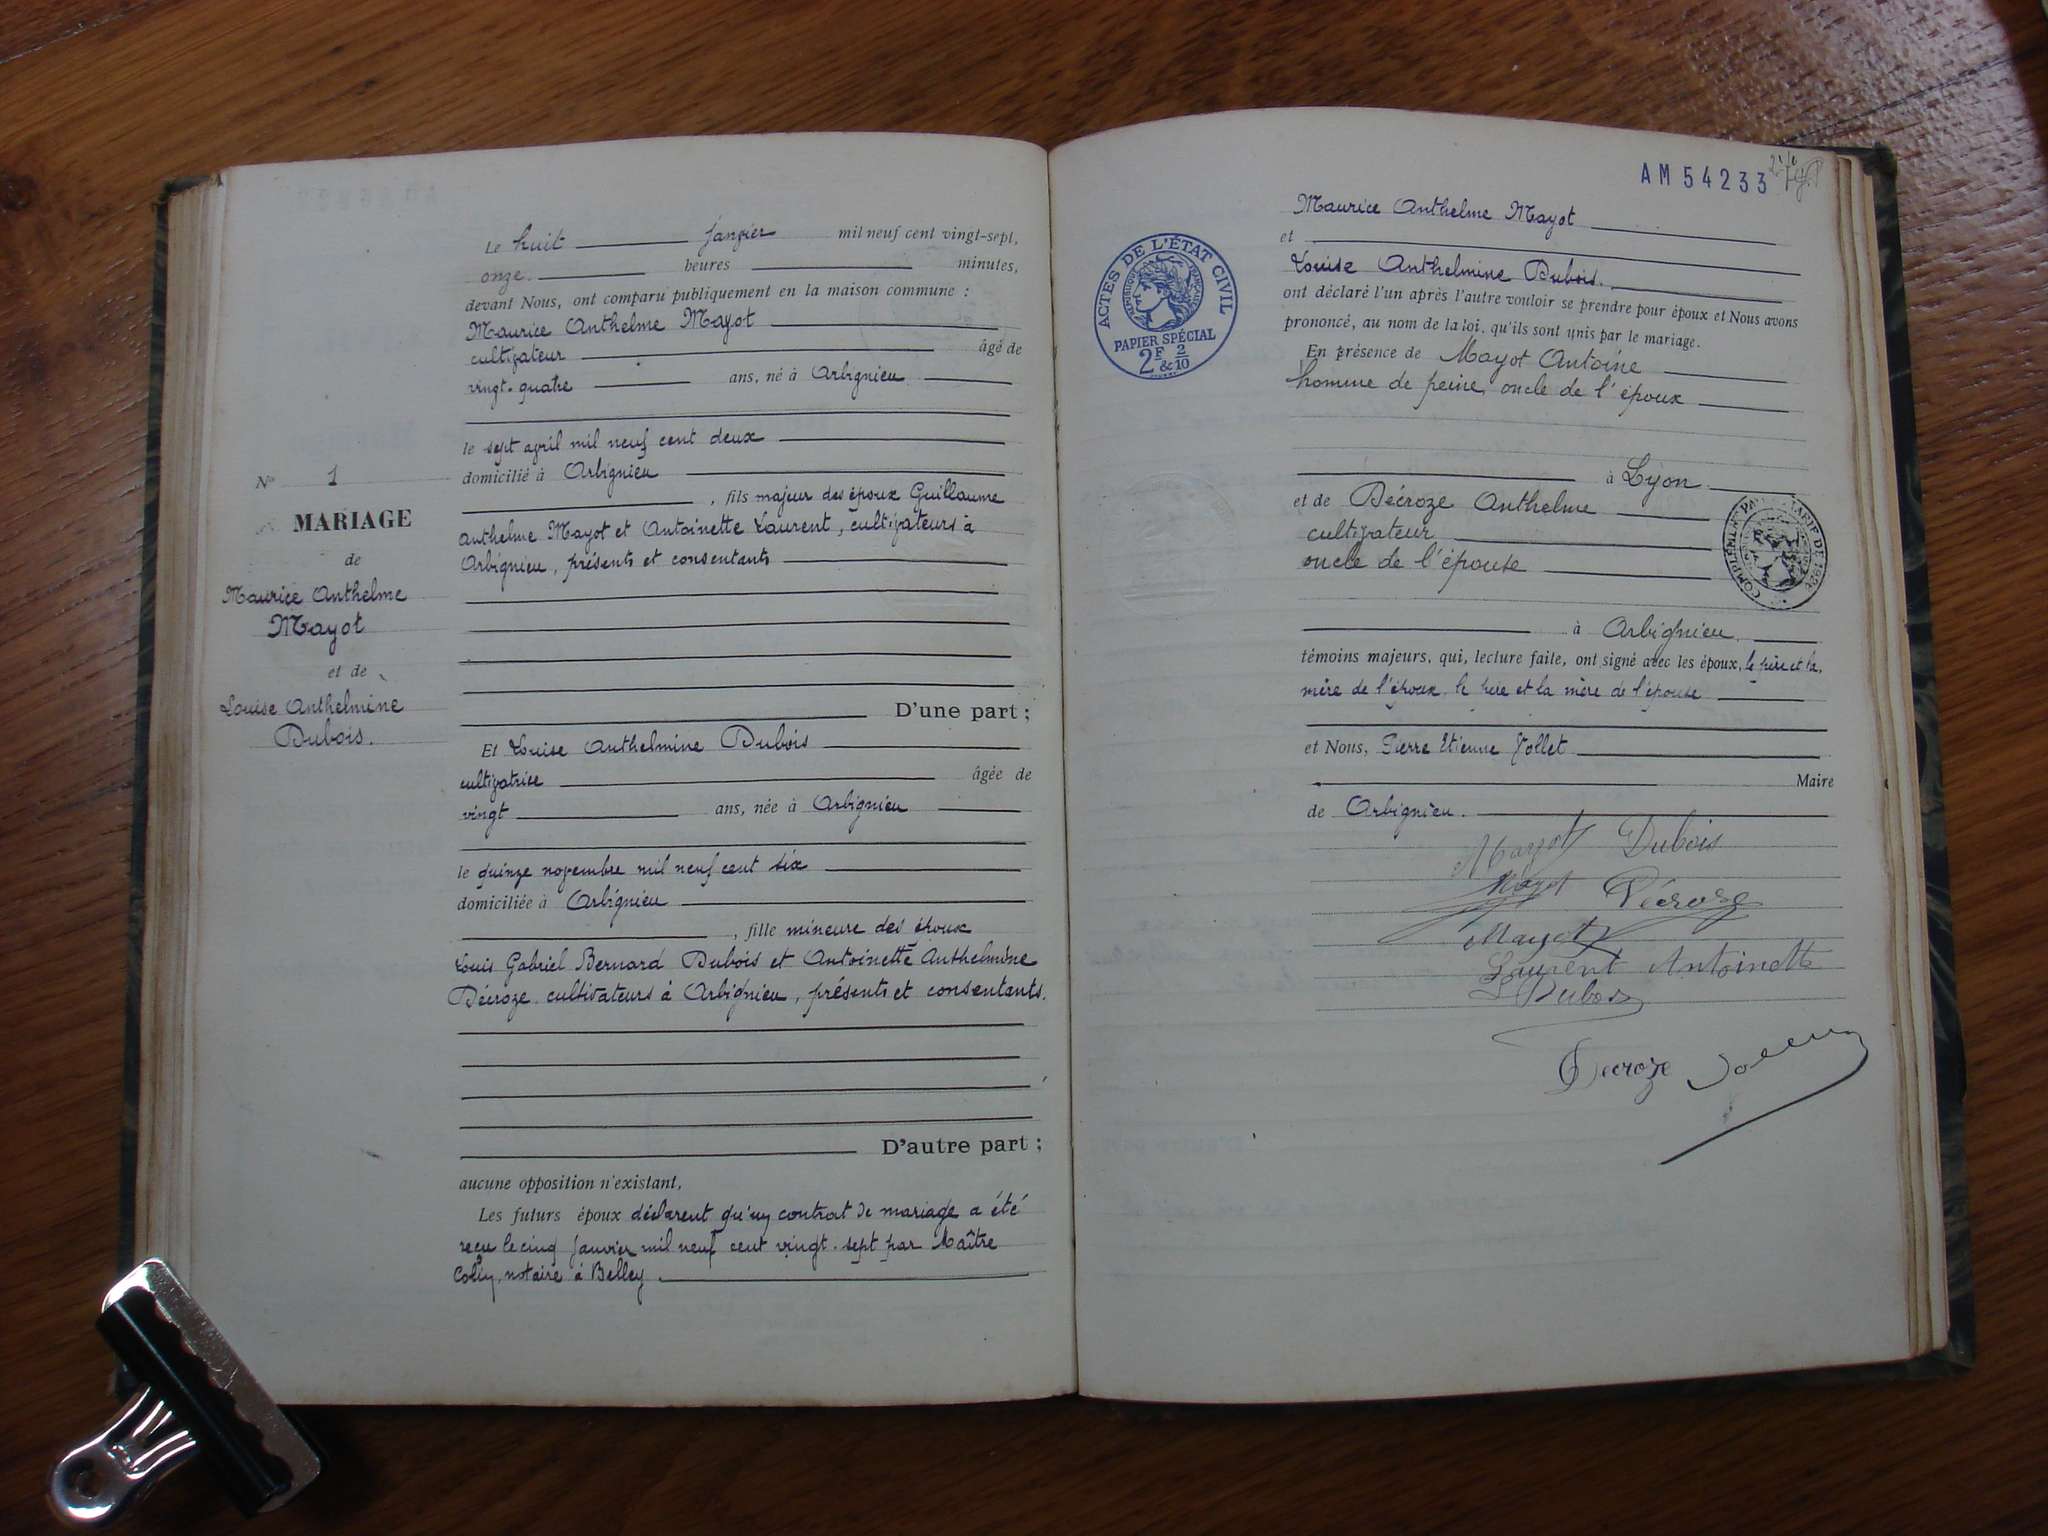 N° 1
MARIAGE
de
Maurice Anthelme
Mayot
et de
Louise Anthelmine
Dubois.
Le huit janvier mil neuf cent vingt-sept,
onze heures minutes,
devant Nous, ont comparu publiquement en la maison commune :
Maurice Anthelme Mayot
cultivateur âgé de
vingt-quatre ans, né à Arbignieu
le sept avril mil neuf cent deux
domicilié à Arbignieu
, fils majeur des époux Guillaume
Anthelme Mayot et Antoinette Laurent, cultivateurs à
Arbignieu, présents et consentants
D'une part ;
Et Louise Anthelmine Dubois
cultivatrice âgée de
vingt ans, née à Arbignieu
le quinze novembre mil neuf cent six
domiciliée à Arbignieu
, fille mineure des époux
Louis Gabriel Bernard Dubois et Antoinette Anthelmine
Décroze, cultivateurs à Arbignieu, présents et consentants.
D'autre part ;
aucune opposition n'existant,
Les futurs époux déclarent qu'un contrat de mariage a été
reçu le cinq janvier mil neuf cent vingt-sept par Maître
notaire à Belley
AM 54233
ACTES DE L'ÉTAT CIVIL
RÉPUBLIQUE FRANÇAISE
PAPIER SPÉCIAL
2F & 2/10
Maurice Anthelme Mayot
et
Louise Anthelmine Dubois.
ont déclaré l'un après l'autre vouloir se prendre pour époux et Nous avons
prononcé, au nom de la loi, qu'ils sont unis par le mariage.
En présence de Mayot Antoine
homme de peine, oncle de l'époux
à Lyon
et de Décroze Anthelme
cultivateur
oncle de l'épouse
à Arbignieu.
témoins majeurs, qui, lecture faite, ont signé avec les époux, le père et la
mère de l'époux, le père et la mère de l'épouse
et Nous, Pierre Etienne Vollet
Maire
de Arbignieu.
Mayot Dubois
Mayot Décroze
Mayot
Laurent Antoinette
L Dubois
Décroze